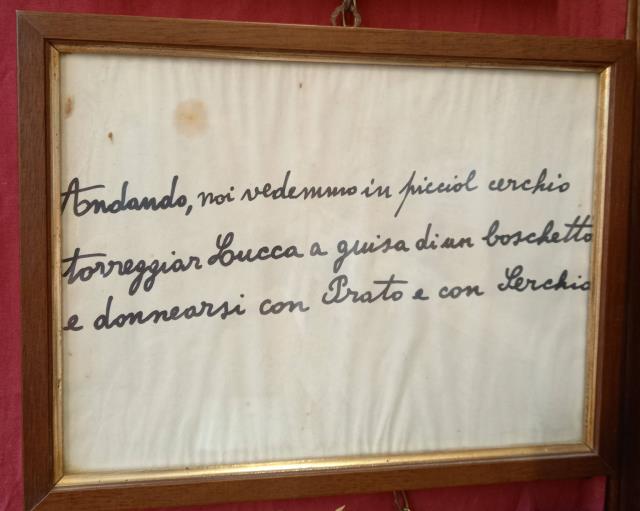 Andando, noi vedemmo in picciol cerchio
torreggiar Lucca a guisa di un boschetto
e donnearsi con Prato e con Serchio